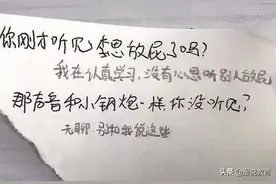 你刚才听见李思放屁了吗?
我在认真学习,没有心思听别人放屁
那声音和小钢炮一样你没听见?
无聊.别和我说这些
头条 @墨说教育